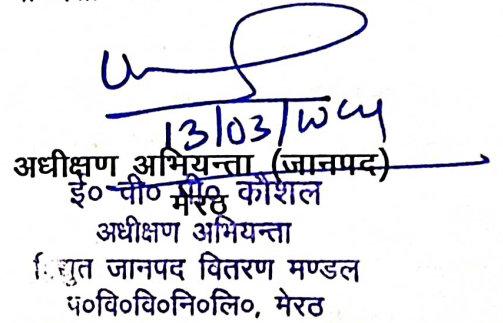 13/03/
अधीक्षण अभियन्ता (जानपद)
मेरठ
ई० पी० पी० कौशल
अधीक्षण अभियन्ता
विद्युत जानपद वितरण मण्डल
प०वि०वि०नि०लि०, मेरठ